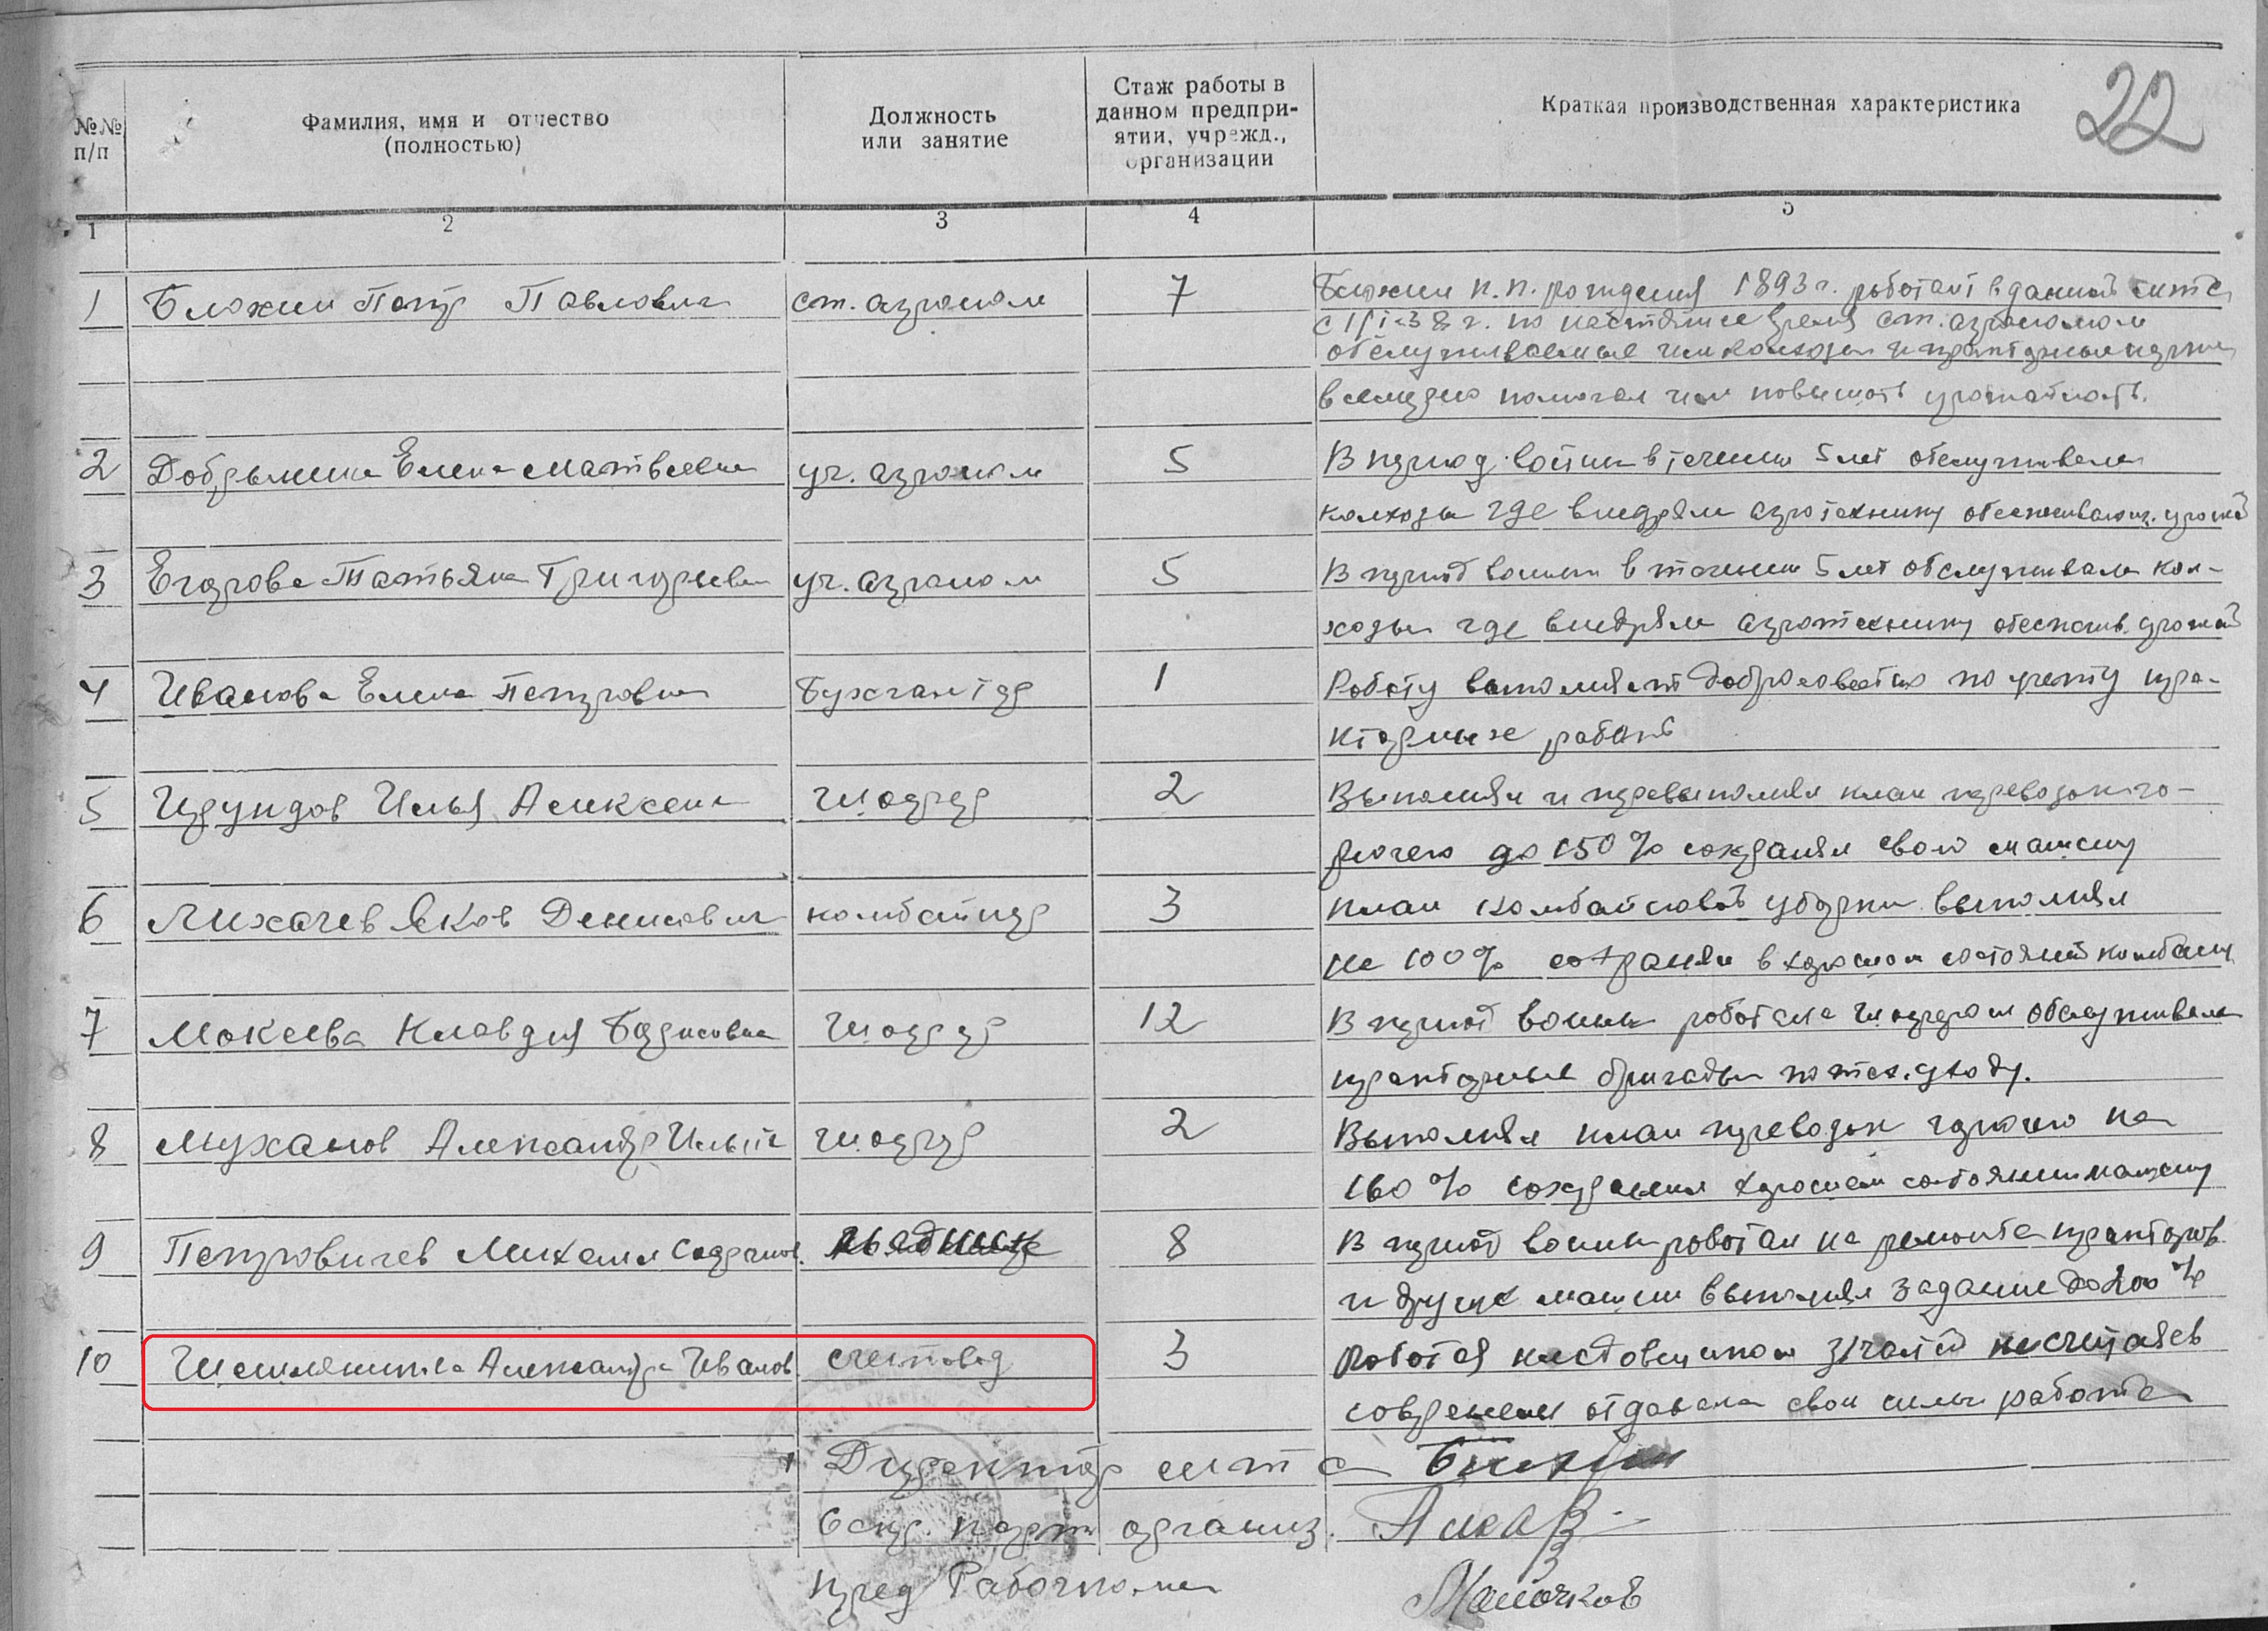 22
№№ п/п
Фамилия, имя и отчество (полностью)
Должность или занятие
Стаж работы в данном предприятии, учрежд., организации
Краткая производственная характеристика
1 2 3 4 5
1 Блохин Петр Павлович ст. агроном 7 Блохин П.П. рождения 1893 г. работает в данной МТС
с 1938 г. по настоящее время ст. агрономом
обслуживаемые им колхозы и тракторные
помогал им повышать урожайность.
2 Добрынина Елена Матвеевна уч. агроном 5 В период войны в течении 5 лет обслуживала
колхозы где внедряла агротехнику обеспечивающ. урожай
3 Егорова Татьяна Григорьевна уч. агроном 5 В период войны в течении 5 лет обслуживала кол-
хозы где внедряла агротехнику обеспечив. урожай
4 Иванова Елена Петровна Бухгалтер 1 Работу выполняет добросовестно по учету тра-
кторных работ
5 Илья Алексеев Шофер 2 Выполнял и перевыполнял план перевозок го-
рючего до 150% сохранял свою машину
6 Лихачев Яков Денисович комбайнер 3 план комбайновой уборки выполнял
на 100% сохранял в хорошем состоянии комбайн
7 Мокеева Клавдия Борисовна Шофер 12 В период войны работала шофером обслуживала
тракторные бригады по тех. уходу.
8 Муханов Александр Ильич шофер 2 Выполнял план перевозок горючего на
160% сохранял хорошем состоянии машину
9 Петровичев Михаил 8 В период войны работал на ремонте тракторов
и других машин выполнял задание до 200%
10 Александра Иванов. счетовод 3 Работая кладовщиком зчастую не считаясь
со временем отдавала свои силы работе
Директор МТС
Секр. парт организ.
Пред Рабочкома